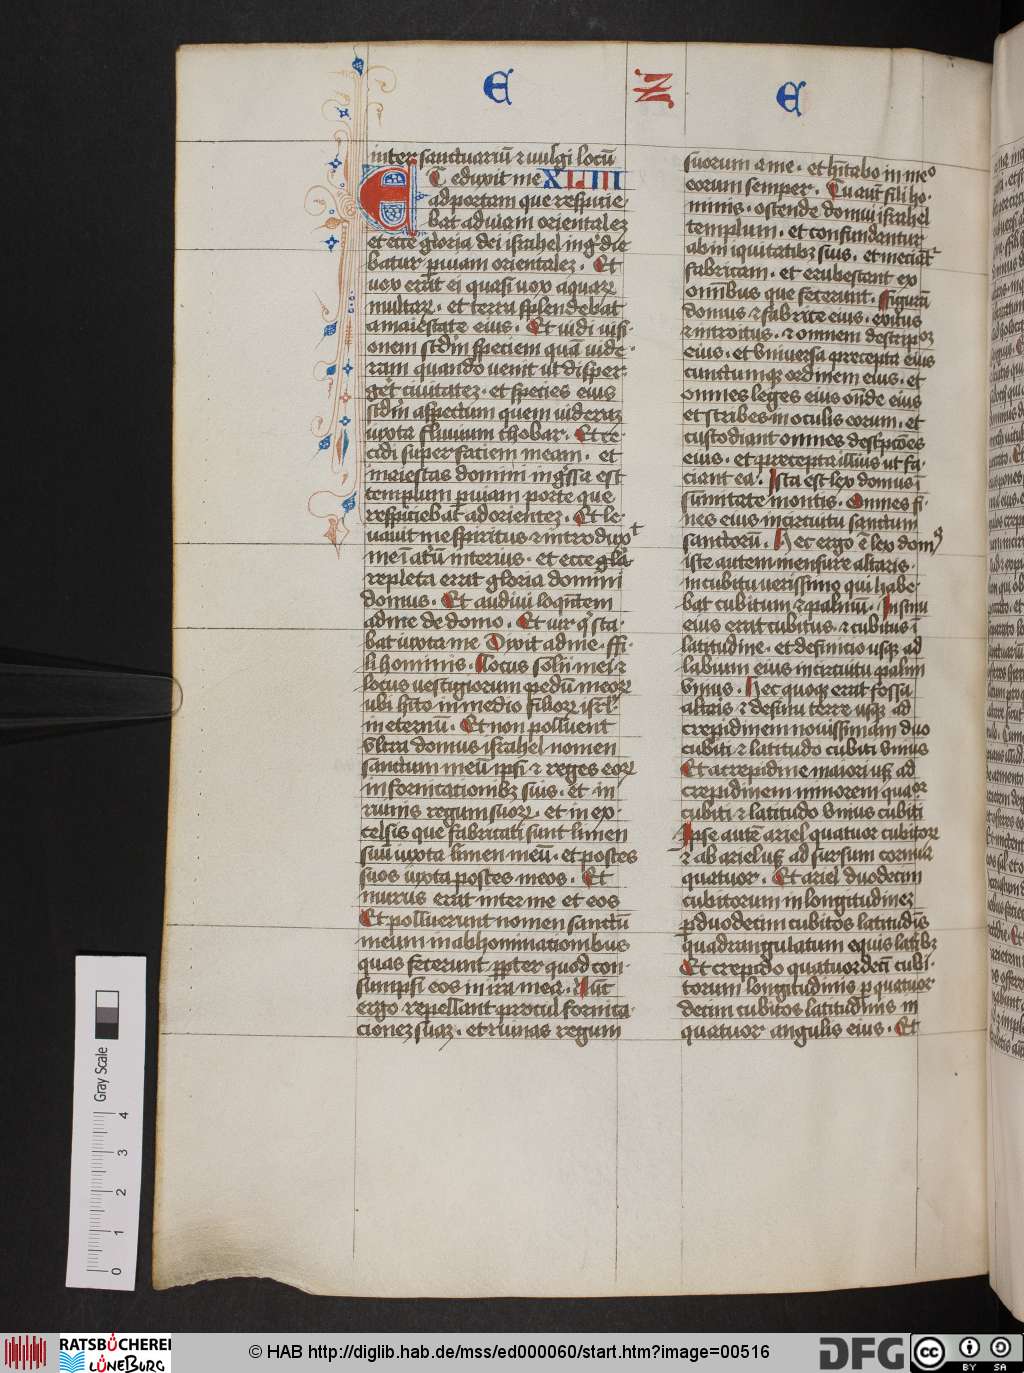 E Z E
inter sanctuariū ⁊ uulgi locū
ET eduxit me XLIII
ad portam que respicie‐
bat ad uiam orientalez
et ecce gloria dei israhel ingᵉdie
batur p̱ uiam orientalez · Et
uox erat ei quasi uox aquaꝝ
multaꝝ · et terra splendebat
a maiestate eius · Et uidi uisi·
onem scd̄m speciem quā uide·
ram quando venit ut disper·
geret ciuitatez · et species eius
scd̄m aspectum quem uideraꝫ
iuxta fluuium chobar · Et ce·
cidi super faciem meam · et
maiestas domini ingᵉssa est
templum p̱ uiam porte que
respiciebat ad orientez · Et le·
uauit me spiritus ⁊ introduxᵗ
me ī atʳiū interius · et ecce glā
repleta erat gloria domini
domus · Et audiui loqn̄tem
ad me de domo · Et uir qⁱ sta·
bat iuxta me Dixit ad me · ffi·
li hominis · Locus solij mei ⁊
locus vestigiorum pedū meoꝝ
ubi hito in medio filioꝝ isrl̄·
in eternū · Et non polluent
vltra domus israhel nomen
sanctum meū ipsi ⁊ reges eoꝝ
in fornicationibꝫ suis · et in
ruinis regum suoꝝ · et in ex
celsis que fabricati sunt limen
suū iuxta limen meū · et postes
suos iuxta postes meos · Et
murus erat inter me et eos
Et polluerunt nomen sanctū
meum in abhominationibus
quas fecerunt ꝓpter quod con·
sumpsi eos in ira mea · Nūc
ergo repellant procul fornica·
cionez suaꝫ · et ruinas regum
suorum a me · et hītabo in meº
eorum semper · Tu aut̄ fili ho·
minis · ostende domui israhel
templum · et confundantur
ab iniquitatibꝫ suis · et meciātʳ
fabricam · et erubescant ex
omībus que fecerunt · ffigurā
domus ⁊ fabrice eius · exitus
⁊ introitus · ⁊ omnem descripoꝫ
eius · et vniuersa precepta eius
cunctumqꝫ ordinem eius · et
omnes leges eius onde eius
et scribes in oculis eorum · et
custodiant omnes descripcōes
eius · et precepta illius ut fa·
ciant ea · Ista est lex domus ī
summitate montis · Omnes fi·
nes eius in circuitu sanctum
sanctorū · Hec ergo ē lex domꝰ
iste autem mensure altaris ·
in cubitu uerissimo qui habe
bat cubitum ⁊ palmū · In sinu
eius erat cubitus · ⁊ cubitus ī
latitudine · et definicio usqꝫ ad
labium eius in circuitu palmi
vnius · Hec quoqꝫ erat fossa
altaris ⁊ de sinu terre usqꝫ ad
crepidinem nouissimam duo
cubiti ⁊ latitudo cubiti vnius
Et a crepidine maiori usꝫ ad
crepidinem minorem quaoꝛ
cubiti ⁊ latitudo vnius cubiti
Ipse autē ariel quatuor cubitoꝝ
⁊ ab ariel usꝫ ad sursum cornua
quatuor · Et ariel duodecim
cubitorum in longitudinez
p̱ duodecim cubitos latitudīs
quadrangulatum equis latibꝫ
Et crepido quatuordecī cubi·
torum longitudinis p̱ quatuor
decim cubitos latitudinis in
quatuor angulis eius · Et
Gray Scale
0 1 2 3 4
RATSBÜCHEREI
LÜNEBURG
© HAB http://diglib.hab.de/mss/ed000060/start.htm?image=00516
DFG
cc BY SA